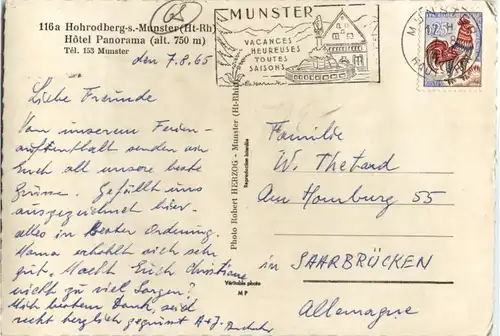 116a Hohrodberg-s.-Munster (Ht-Rh)
Hôtel Panorama (alt. 750 m)
Tél. 153 Munster
den 7.8.65
Liebe Freunde
Von unserem Ferien-
aufenthalt senden wir
Euch all unsere beste
Grüsse. Gefällt uns
ausgezeichnet hier-
alles in bester Ordnung.
Mama erholt sich sehr
gut. Macht Euch Christiane
nicht zu viel Sorgen?
Mit bestem Dank, seid
recht herzlich gegrüsst A+J.
Photo Robert HERZOG - Munster (Ht-Rhin)
Reproduction interdite
Véritable photo
M P
MUNSTER
VACANCES
HEUREUSES
TOUTES
SAISONS
Familie
W. Thetard
Am Homburg 55
in SAARBRÜCKEN
Allemagne